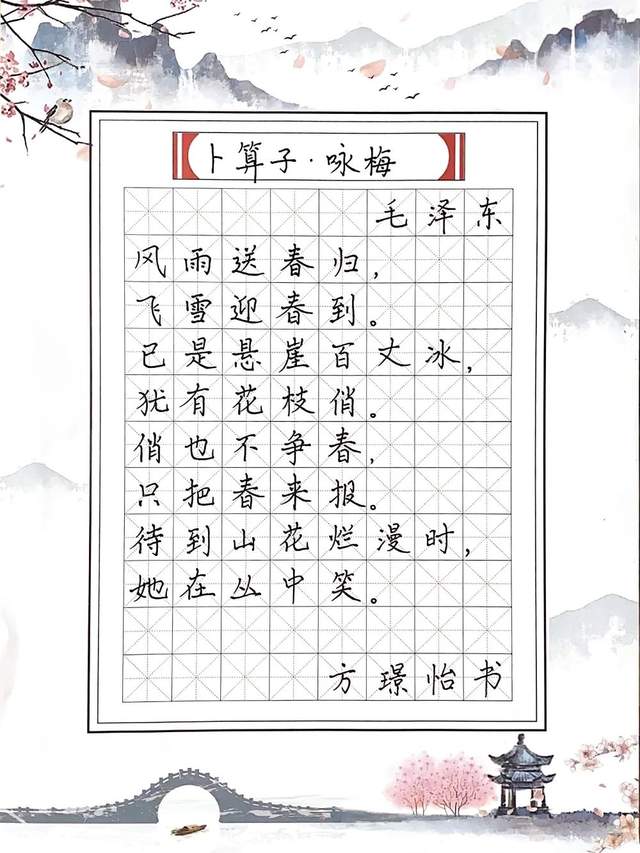 卜算子·咏梅
毛泽东
风雨送春归，
飞雪迎春到。
已是悬崖百丈冰，
犹有花枝俏。
俏也不争春，
只把春来报。
待到山花烂漫时，
她在丛中笑。
方璟怡书